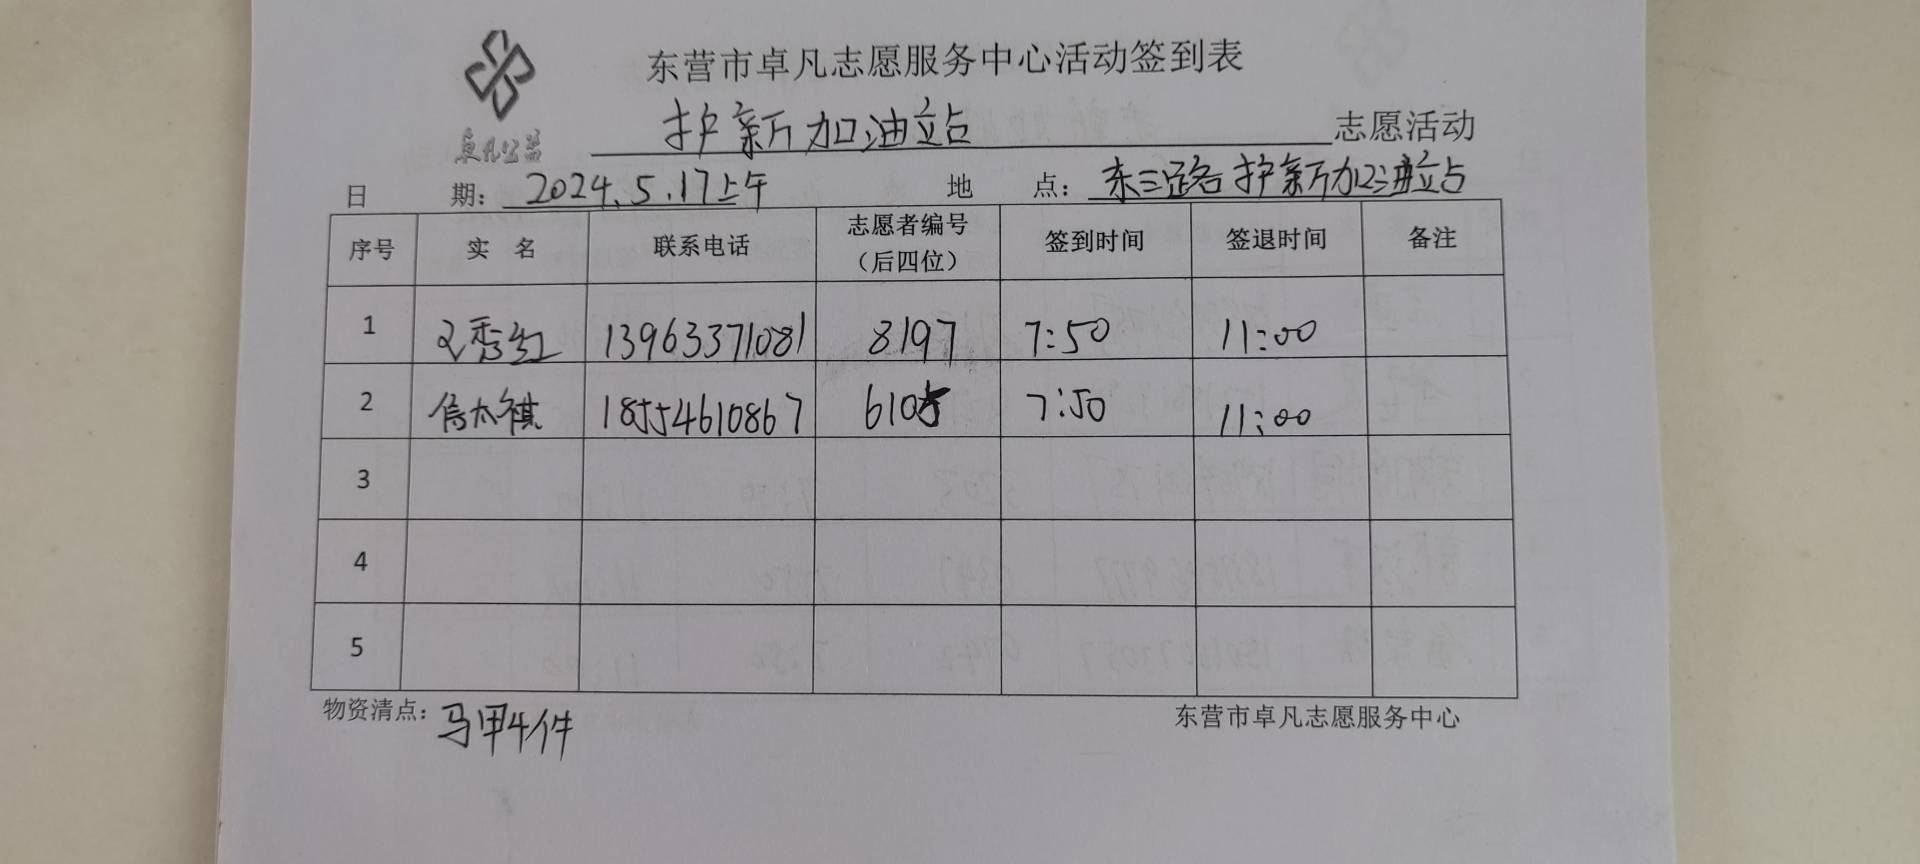 东营市卓凡志愿服务中心活动签到表
卓凡公益
护新加油站 志愿活动
日 期: 2024.5.17上午 地 点: 东三路护新加油站
序号 实 名 联系电话 志愿者编号（后四位） 签到时间 签退时间 备注
1 秀红 13963371081 8197 7:50 11:00
2 18554610867 6105 7:50 11:00
3
4
5
物资清点: 马甲4件 东营市卓凡志愿服务中心